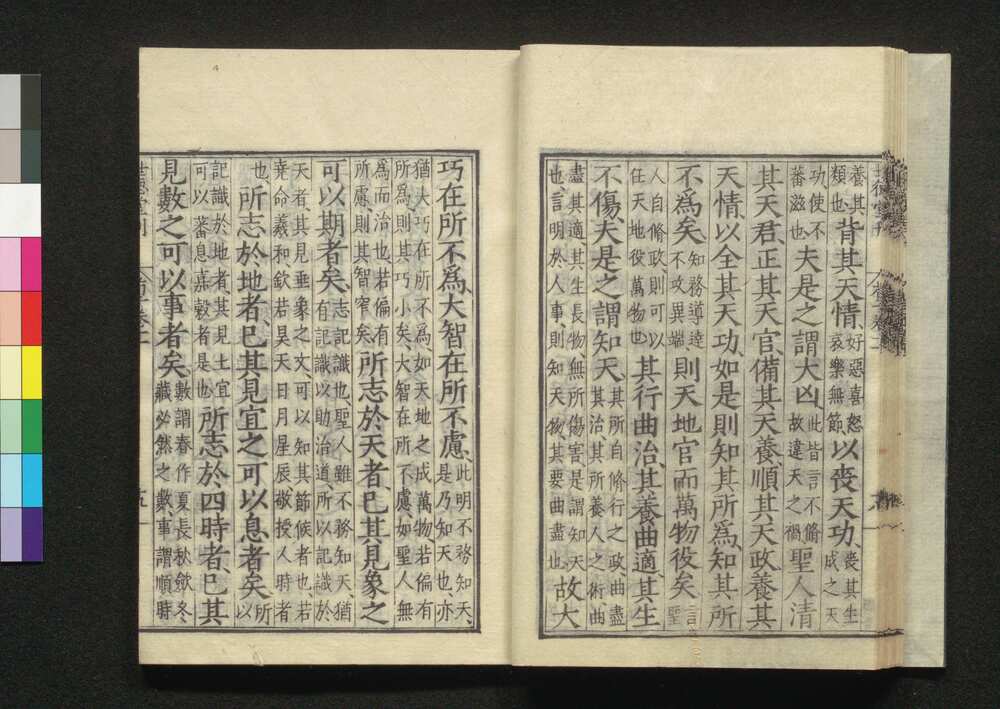 養其類也背其天情好惡喜怒哀樂無節以喪天功喪其生成之天
功使不蕃滋也夫是之謂大凶此皆言不脩故違天之禍聖人清
其天君正其天官備其天養順其天政養其
天情以全其天功如是則知其所爲知其所
不爲矣知務導達不攻異端則天地官而萬物役矣言聖
人自脩政則可以任天地役萬物也其行曲治其養曲適其生
不傷夫是之謂知天其所自脩行之政曲盡其治其所養人之術曲
盡其適其生長物無所傷害是謂知天也言明於人事則知天物其要曲盡也故大
巧在所不爲大智在所不慮此明不務知天是乃知天也亦
猶大巧在所不爲如天地之成萬物若偏有所爲則其巧小矣大智在所不慮如聖人無
爲而治也若偏有所慮則其智窄矣所志於天者已其見象之
可以期者矣志記識也聖人雖不務知天猶有記識以助治道所以記識於
天者其見垂象之文可以知其節候者也若堯命羲和欽若昊天日月星辰敬授人時者
也所志於地者已其見宜之可以息者矣所以
記識於地者其見土宜可以蕃息嘉穀者是也所志於四時者已其
見數之可以事者矣數謂春作夏長秋歛冬藏必然之數事謂順時